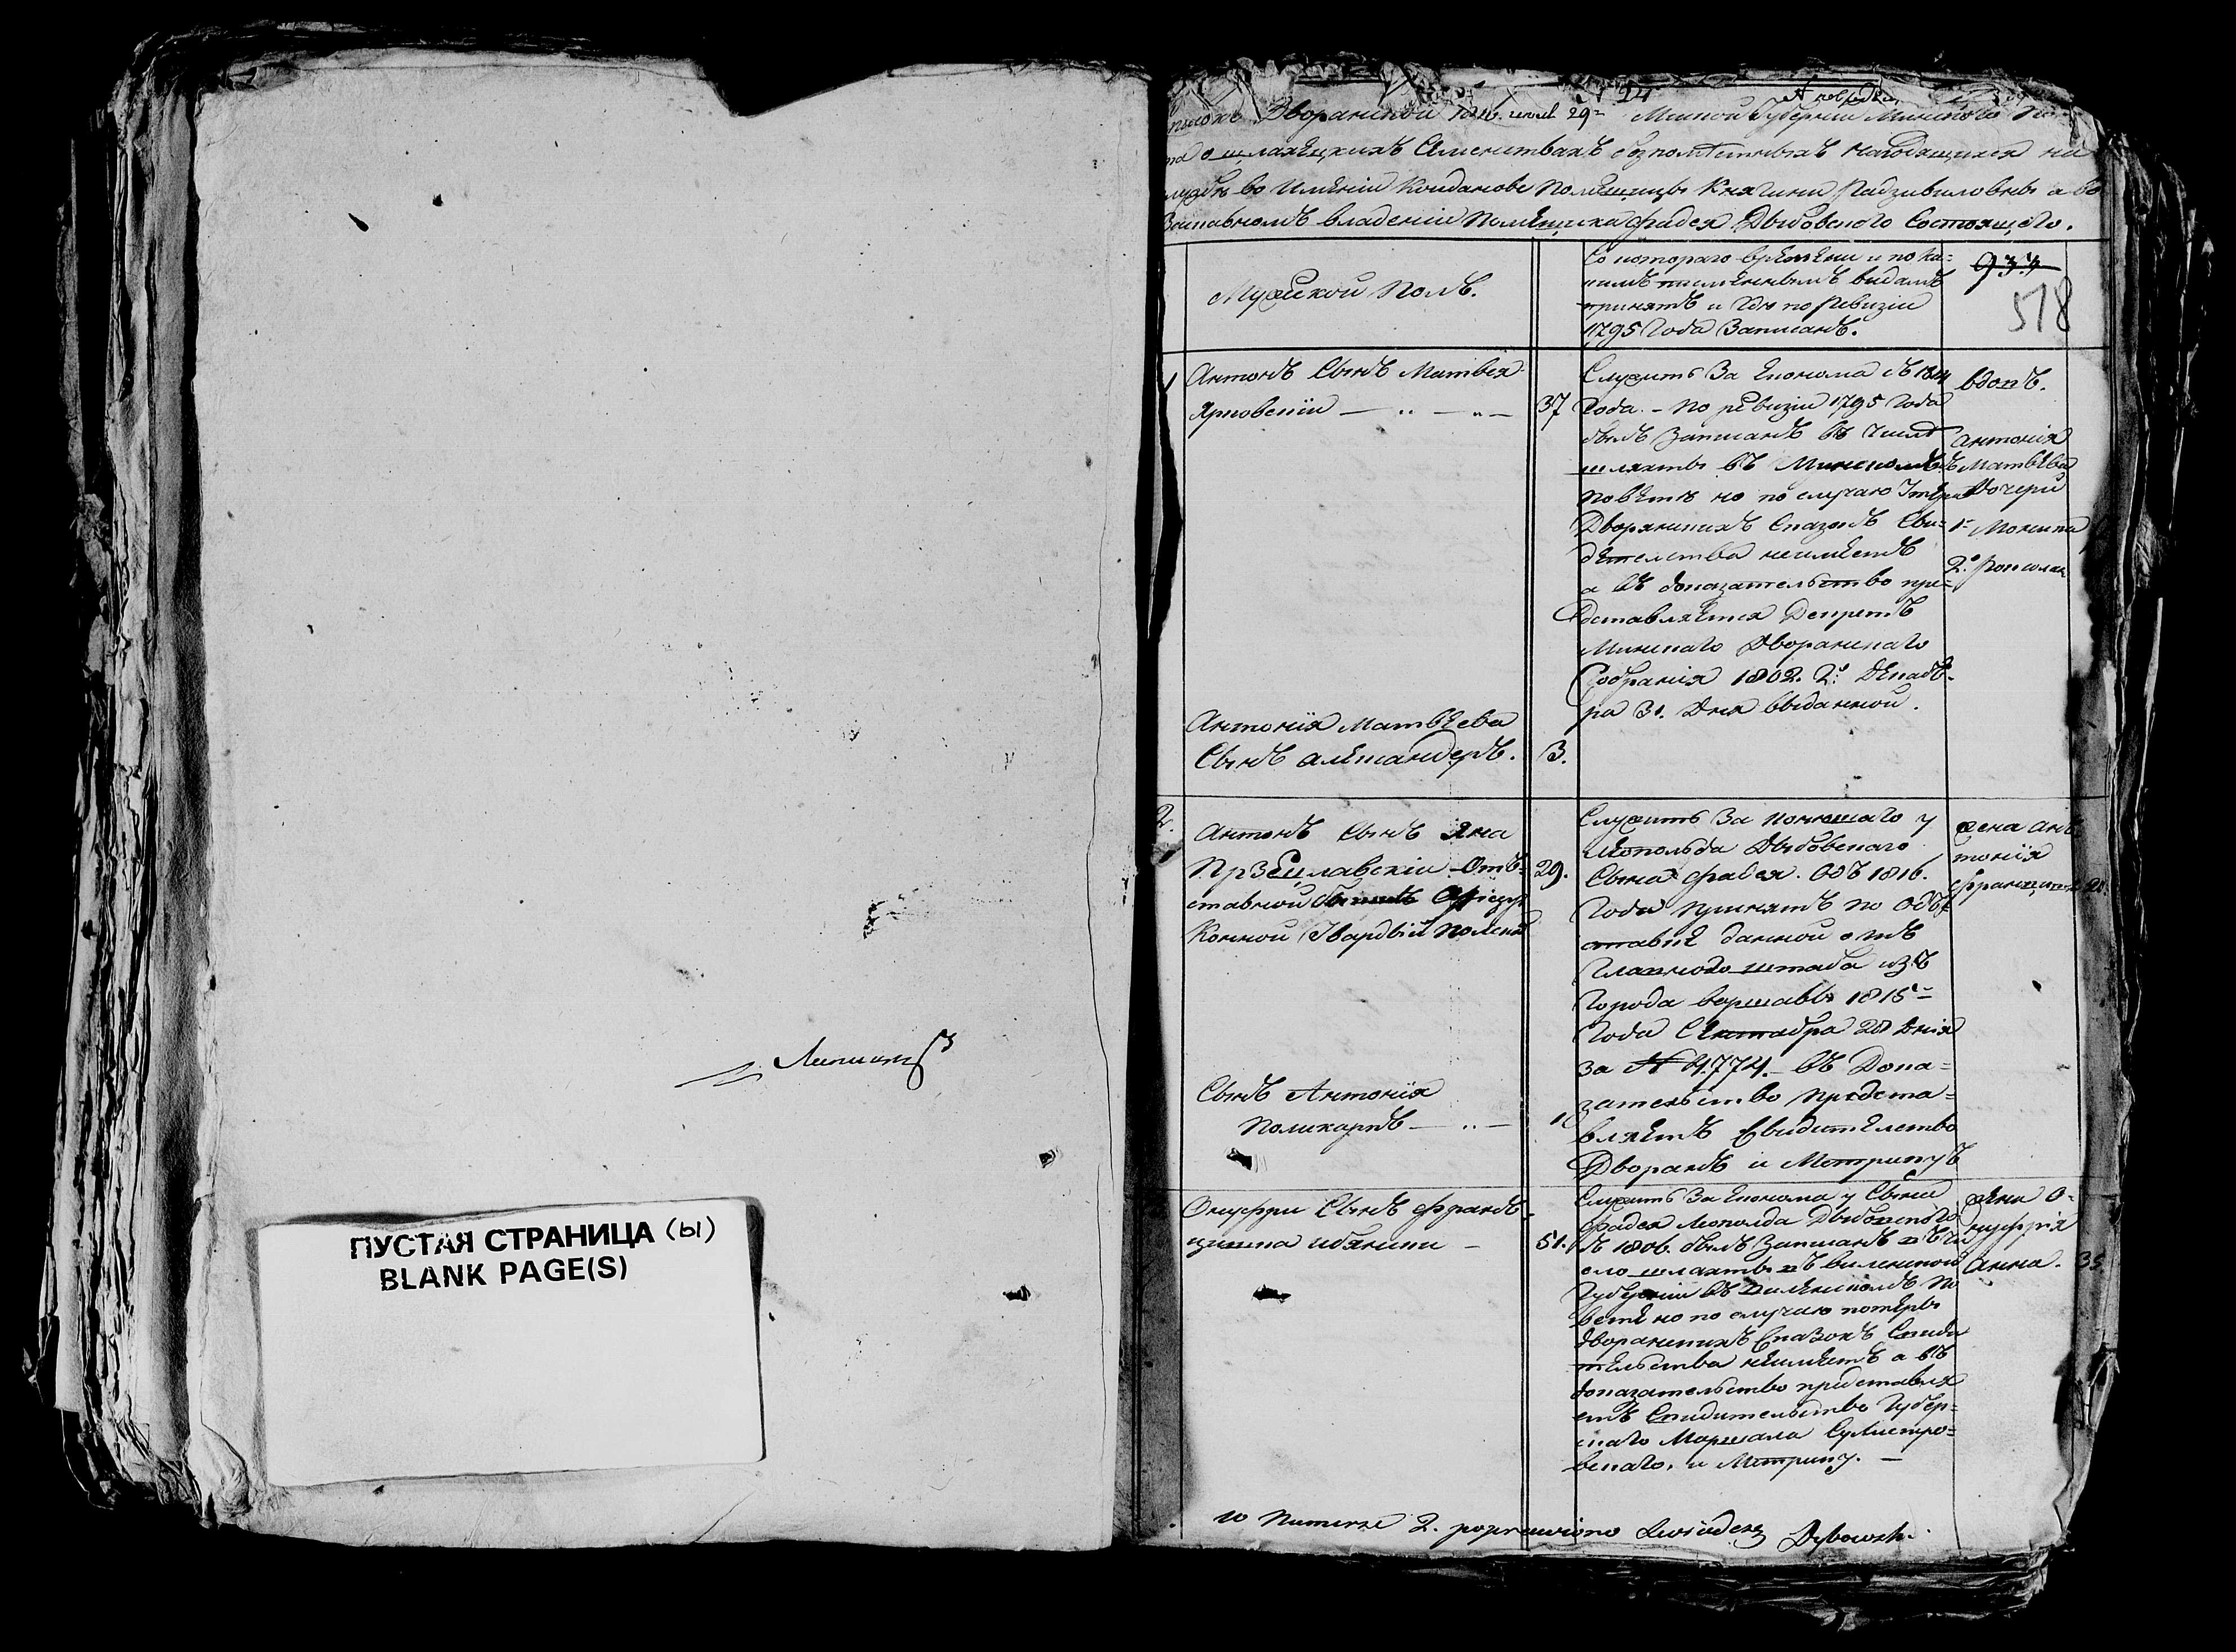 Лист
ПУСТАЯ СТРАНИЦА (ы)
BLANK PAGE(S)
24
Дворянской 1816. июля 29 Минской Губернии Минскаго По
о шляхецкихъ Семействахъ безпоместныхъ находящихся на
службе во Имѣніи Койданове Помѣщицы Княгини Радзивиловны а во
Заставномъ владеніи Помѣщика Фадея Дыбовского Состоящего.
Мужской Полъ.
Со котораго врѣмѣни и по ка=
кимъ писмѣннымъ видамъ
принятъ и где по Ревизіи
1795 Года Записанъ.
934
518
1
Антонъ Сынъ Матвея
Ярковскій
37
Служитъ За Економа съ 1814
Года. - По ревизіи 1795 Года
былъ Записанъ въ числе
шляхты въ Минскомъ
Повѣтѣ но по случаю
Дворянскихъ Сказокъ Сви=
дѣтелства неимѣетъ
а въ доказательство пре=
дставляѣтся Декретъ
Минскаго Дворанскаго
Собранія 1802. 2. Дѣкаб=
ра 31. Дня выданной.
вдовъ.
Антонія
Матвѣева
Дочери
1
2.
Антонія Матвѣева
Сынъ Алѣксандеръ.
3.
2.
Антонъ Сынъ Яна
Прзецлавскій Отъ=
ставной Офіцер
Конной Гвардій Полской
29.
Служитъ За Конюшаго у
Леопольда Дыбовскаго
Сына Фадея. Одъ 1816.
Года принятъ по Одъ
ставкѣ данной отъ
Главного штаба изъ
Города Варшавы 1815
Года Сѣнтабра 28 Дня
за № 4774. - въ Дока=
зательство предста=
вляѣтъ Свидитѣлство
Дворанъ и Метрику
жена Ан
тонія
Францишка
21.
Сынъ Антонія
Поликарпъ
Онуфри Сынъ Франъ
цишка
51.
Служитъ За Економа у Сына
Фадея Леополда Дыбовского
съ 1806. былъ Записанъ въ чи
сло шляхты въ виленской
Губерніи въ Виленскомъ По
ветѣ но по случаю потѣры
дворанскихъ Сказокъ Свиди
тѣльства неимѣетъ а въ
доказательство представля
етъ Свидительство Губер=
скаго Маршала Сулистро=
вскаго, и Метрику. -
Жена О=
нуфрія
Анна.
35
w Numerze 2. poprawiono Dybowski